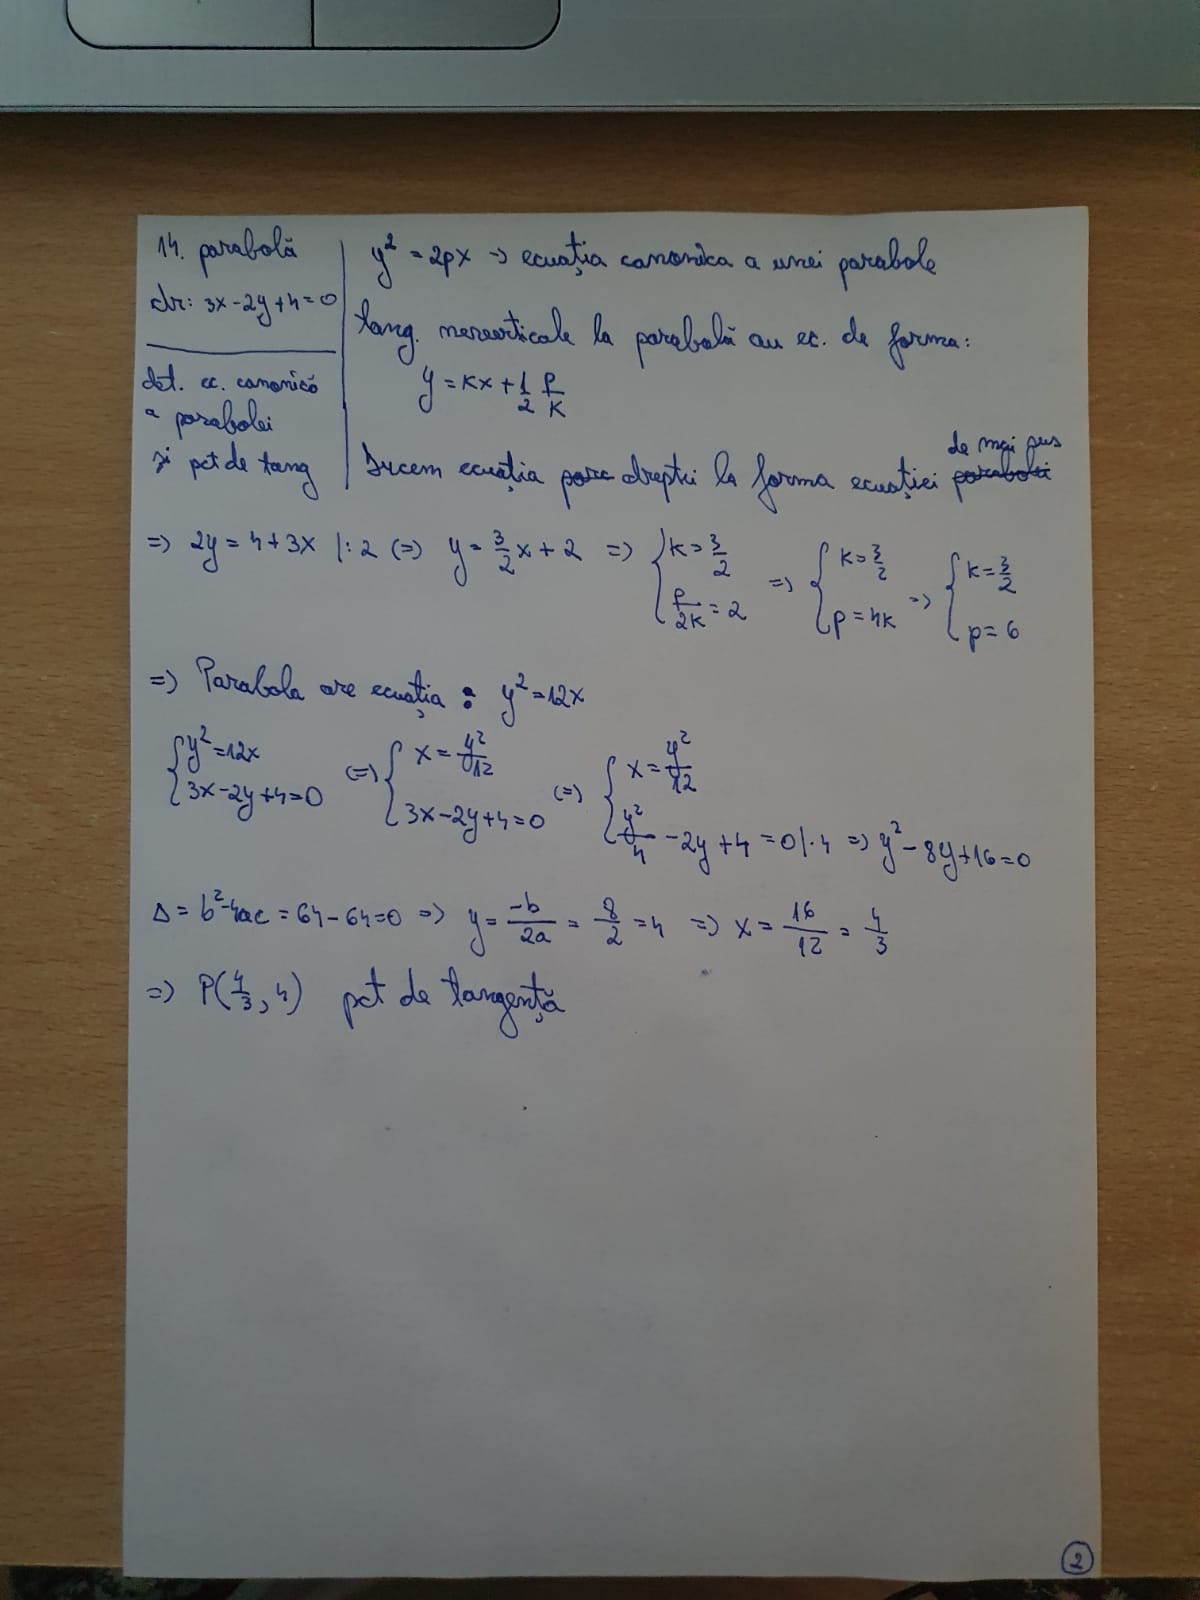 14. parabolă
dr: 3x-2y+4=0
det. ec. canonică
a parabolei
și pct de tang
y² = 2px → ecuația canonica a unei parabole
tang. neverticale la parabolă au ec. de forma:
y = kx + 1/2 p/k
de mai sus
Ducem ecuația para dreptei la forma ecuației parabolei
=> 2y = 4+3x |:2 (=) y = 3/2 x + 2 => { k = 3/2 ; p/2k = 2 => { k = 3/2 ; p = 4k => { k = 3/2 ; p = 6
=> Parabola are ecuația : y² = 12x
{ y² = 12x ; 3x-2y+4=0 (=) { x = y²/12 ; 3x-2y+4=0 (=) { x = y²/12 ; y²/4 - 2y + 4 = 0 |·4 => y² - 8y + 16 = 0
Δ = b²-4ac = 64-64=0 => y = -b/2a = 8/2 = 4 => x = 16/12 = 4/3
=> P(4/3, 4) pct de tangență
2